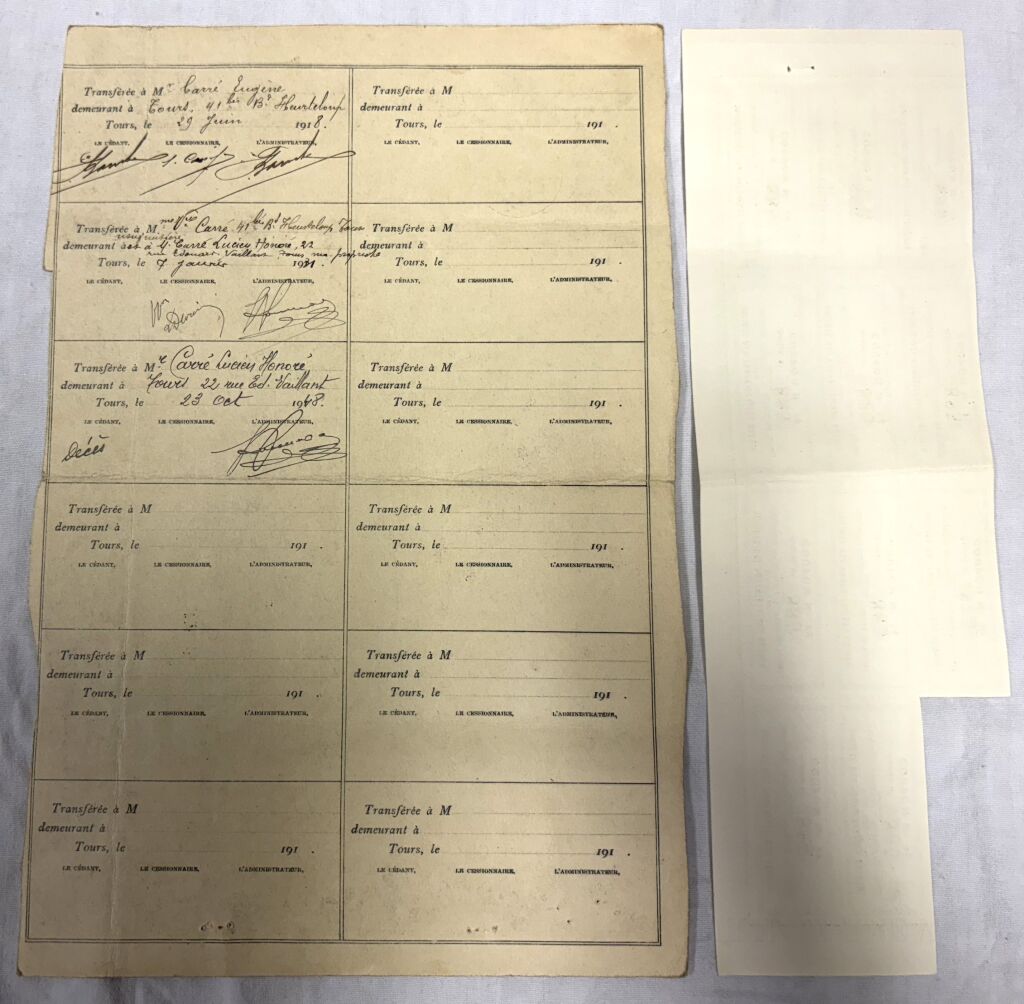 Transférée à Mr Carré Eugène
demeurant à Tours, 41bis Bd Heurteloup
Tours, le 29 Juin 1918.
LE CÉDANT, LE CESSIONNAIRE, L'ADMINISTRATEUR,
Transférée à Mme Vve Carré, 41bis Bd Heurteloup Tours
usufruitière
demeurant à et à M. Carré Lucien Honoré, 22
rue Edouard Vaillant Tours nu-propriété
Tours, le 7 Janvier 1921
LE CÉDANT, LE CESSIONNAIRE, L'ADMINISTRATEUR,
Transférée à Mr Carré Lucien Honoré
demeurant à Tours 22 rue Ed. Vaillant
Tours, le 23 oct 1948.
LE CÉDANT, LE CESSIONNAIRE, L'ADMINISTRATEUR,
Décès
Transférée à M
demeurant à
Tours, le 191 .
LE CÉDANT, LE CESSIONNAIRE, L'ADMINISTRATEUR,
Transférée à M
demeurant à
Tours, le 191 .
LE CÉDANT, LE CESSIONNAIRE, L'ADMINISTRATEUR,
Transférée à M
demeurant à
Tours, le 191 .
LE CÉDANT, LE CESSIONNAIRE, L'ADMINISTRATEUR,
Transférée à M
demeurant à
Tours, le 191 .
LE CÉDANT, LE CESSIONNAIRE, L'ADMINISTRATEUR,
Transférée à M
demeurant à
Tours, le 191 .
LE CÉDANT, LE CESSIONNAIRE, L'ADMINISTRATEUR,
Transférée à M
demeurant à
Tours, le 191 .
LE CÉDANT, LE CESSIONNAIRE, L'ADMINISTRATEUR,
Transférée à M
demeurant à
Tours, le 191 .
LE CÉDANT, LE CESSIONNAIRE, L'ADMINISTRATEUR,
Transférée à M
demeurant à
Tours, le 191 .
LE CÉDANT, LE CESSIONNAIRE, L'ADMINISTRATEUR,
Transférée à M
demeurant à
Tours, le 191 .
LE CÉDANT, LE CESSIONNAIRE, L'ADMINISTRATEUR,